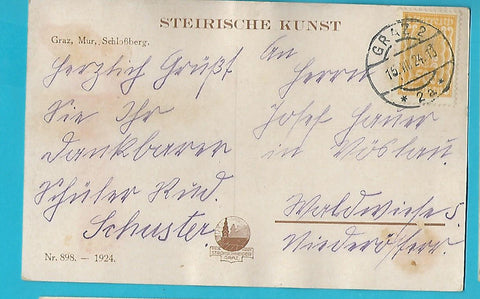 STEIRISCHE KUNST
Graz, Mur, Schloßberg.
Herzlich Grüßt
Sie Ihr
dankbarer
Schüler Rud.
Schuster.
An
Herrn
Josef Hauer
in Vöslau
Waldwiese 5.
Niederösterr.
GRAZ 2
24
* 2a *
GRAZ
Nr. 898. — 1924.